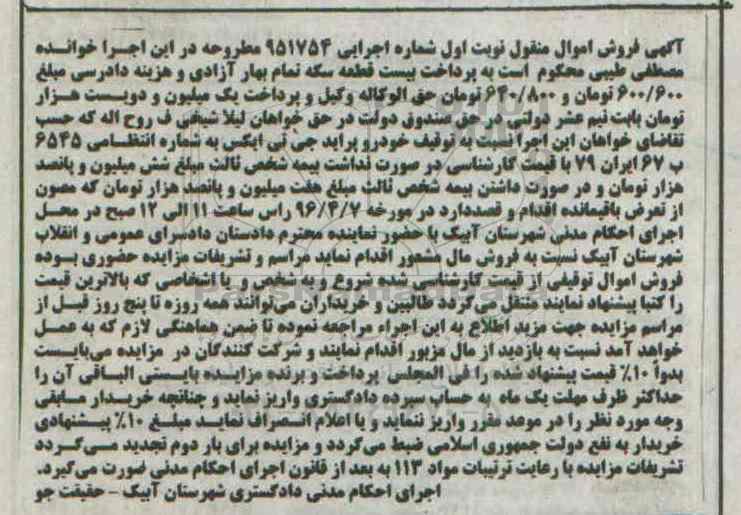 آگهی فروش اموال منقول نوبت اول شماره اجرایی ۹۵۱۷۵۴ مطروحه در این اجرا خوانده
مصطفی طیبی محکوم است به پرداخت بیست قطعه سکه تمام بهار آزادی و هزینه دادرسی مبلغ
۶۰۰/۶۰۰ تومان و ۶۴۰/۸۰۰ تومان حق الوکاله وکیل و پرداخت یک میلیون و دویست هزار
تومان بابت نیم عشر دولتی در حق صندوق دولت در حق خواهان لیلا شیخی ف روح اله که حسب
تقاضای خواهان این اجرا نسبت به توقیف خودرو پراید جی تی ایکس به شماره انتظامی ۶۵۴۵
ب ۶۷ ایران ۷۹ با قیمت کارشناسی در صورت نداشت بیمه شخص ثالث مبلغ شش میلیون و پانصد
هزار تومان و در صورت داشتن بیمه شخص ثالث مبلغ هفت میلیون و پانصد هزار تومان که مصون
از تعرض باقیمانده اقدام و قصددارد در مورخه ۹۶/۴/۷ راس ساعت ۱۱ الی ۱۲ صبح در محل
اجرای احکام مدنی شهرستان آبیک با حضور نماینده محترم دادستان دادسرای عمومی و انقلاب
شهرستان آبیک نسبت به فروش مال مشعور اقدام نماید مراسم و تشریفات مزایده حضوری بوده
فروش اموال توقیفی از قیمت کارشناسی شده شروع و به شخص و یا اشخاصی که بالاترین قیمت
را کتبا پیشنهاد نمایند منتقل می‌گردد طالبین و خریداران می‌توانند همه روزه تا پنج روز قبل از
مراسم مزایده جهت مزید اطلاع به این اجراء مراجعه نموده تا ضمن هماهنگی لازم که به عمل
خواهد آمد نسبت به بازدید از مال مزبور اقدام نمایند و شرکت کنندگان در مزایده می‌بایست
بدوا ۱۰٪ قیمت پیشنهاد شده را فی المجلس پرداخت و برنده مزایده بایستی الباقی آن را
حداکثر ظرف مهلت یک ماه به حساب سپرده دادگستری واریز نماید و چنانچه خریدار مابقی
وجه مورد نظر را در موعد مقرر واریز ننماید و یا اعلام انصراف نماید مبلغ ۱۰٪ پیشنهادی
خریدار به نفع دولت جمهوری اسلامی ضبط می‌گردد و مزایده برای بار دوم تجدید می‌گردد
تشریفات مزایده با رعایت ترتیبات مواد ۱۱۳ به بعد از قانون اجرای احکام مدنی صورت می‌گیرد.
اجرای احکام مدنی دادگستری شهرستان آبیک - حقیقت جو